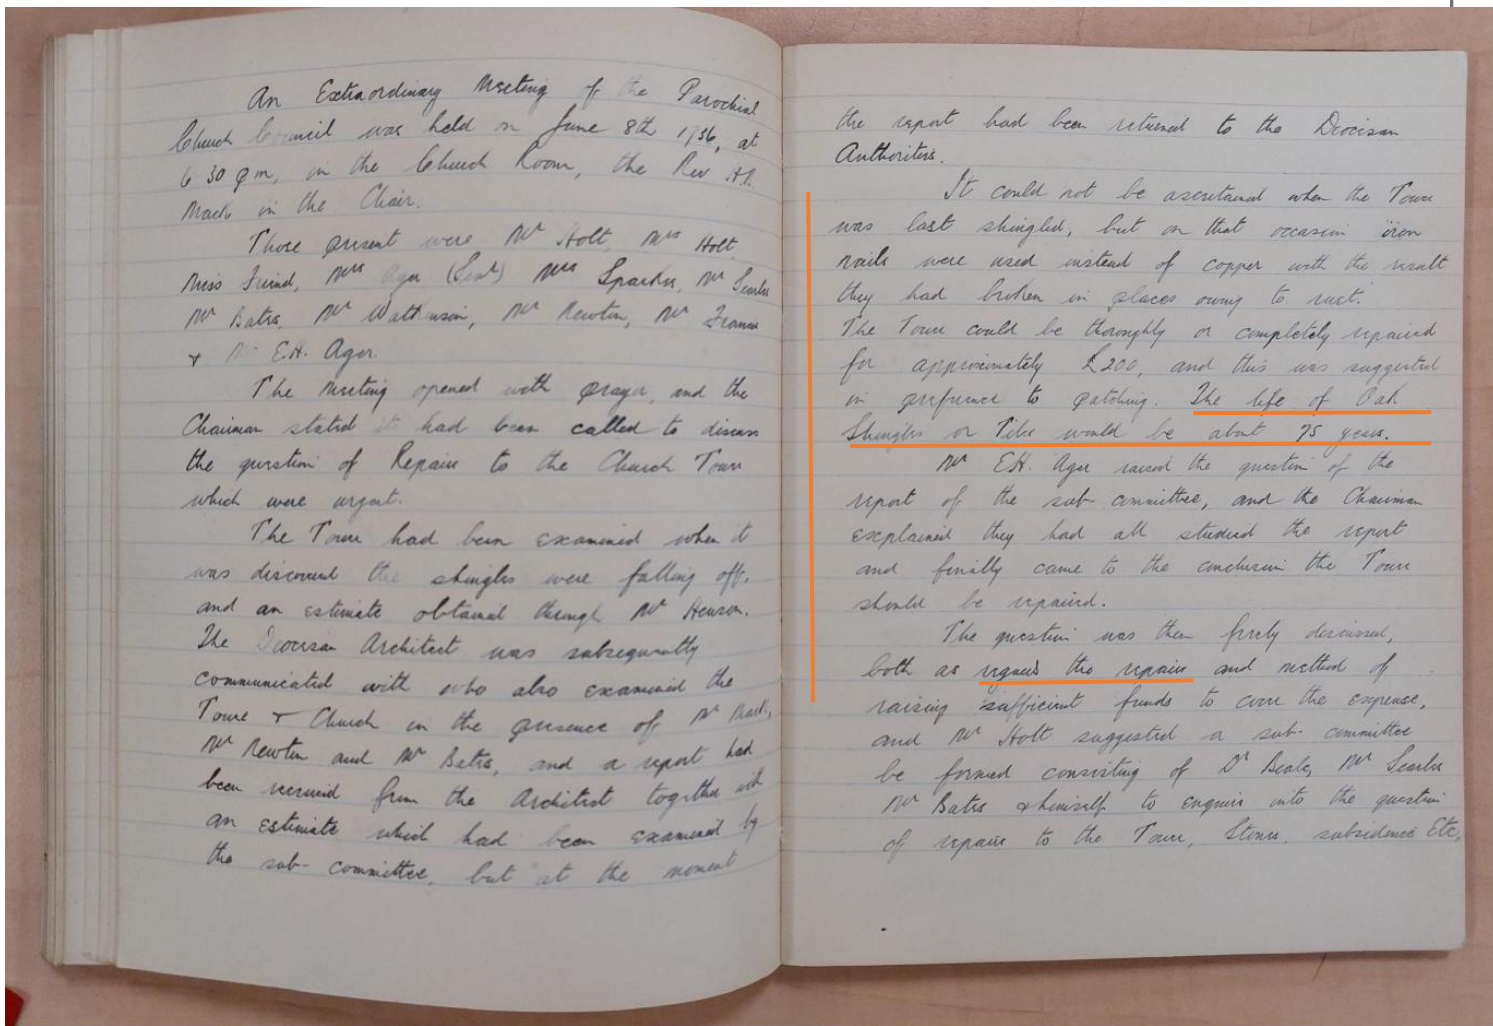 An Extraordinary Meeting of the Parochial
Church Council was held on June 8th 1936, at
6 30 pm, in the Church Room, the Rev H.R.
Mack in the Chair.
Those present were Mr Holt, Mrs Holt,
Miss Friend, Mrs Ager (Senr) Mrs Sparkes, Mr Searles
Mr Bates, Mr Watkinson, Mr Newton, Mr Francis
& Mr E.H. Ager.
The Meeting opened with prayer, and the
Chairman stated it had been called to discuss
the question of Repairs to the Church Tower
which were urgent.
The Tower had been examined when it
was discovered the shingles were falling off,
and an estimate obtained through Mr Hewson.
The Diocesan Architect was subsequently
communicated with who also examined the
Tower & Church in the presence of Mr Mack,
Mr Newton and Mr Bates, and a report had
been received from the Architect together with
an estimate which had been examined by
the sub-committee, but at the moment
the report had been returned to the Diocesan
Authorities.
It could not be ascertained when the Tower
was last shingled, but on that occasion iron
nails were used instead of copper with the result
they had broken in places owing to rust.
The Tower could be thoroughly or completely repaired
for approximately £200, and this was suggested
in preference to patching. The life of Oak
Shingles or Tiles would be about 75 years.
Mr E.H. Ager raised the question of the
report of the sub-committee, and the Chairman
explained they had all studied the report
and finally came to the conclusion the Tower
should be repaired.
The question was then freely discussed,
both as regards the repairs and method of
raising sufficient funds to cover the expense,
and Mr Holt suggested a sub-committee
be formed consisting of Dr Beale, Mr Searles
Mr Bates & himself to enquire into the question
of repairs to the Tower, Stones, subsidence Etc,